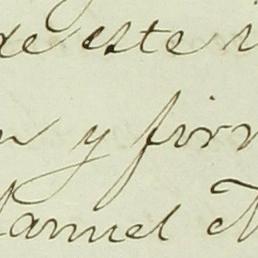 de este i
n y firm
Manuel M